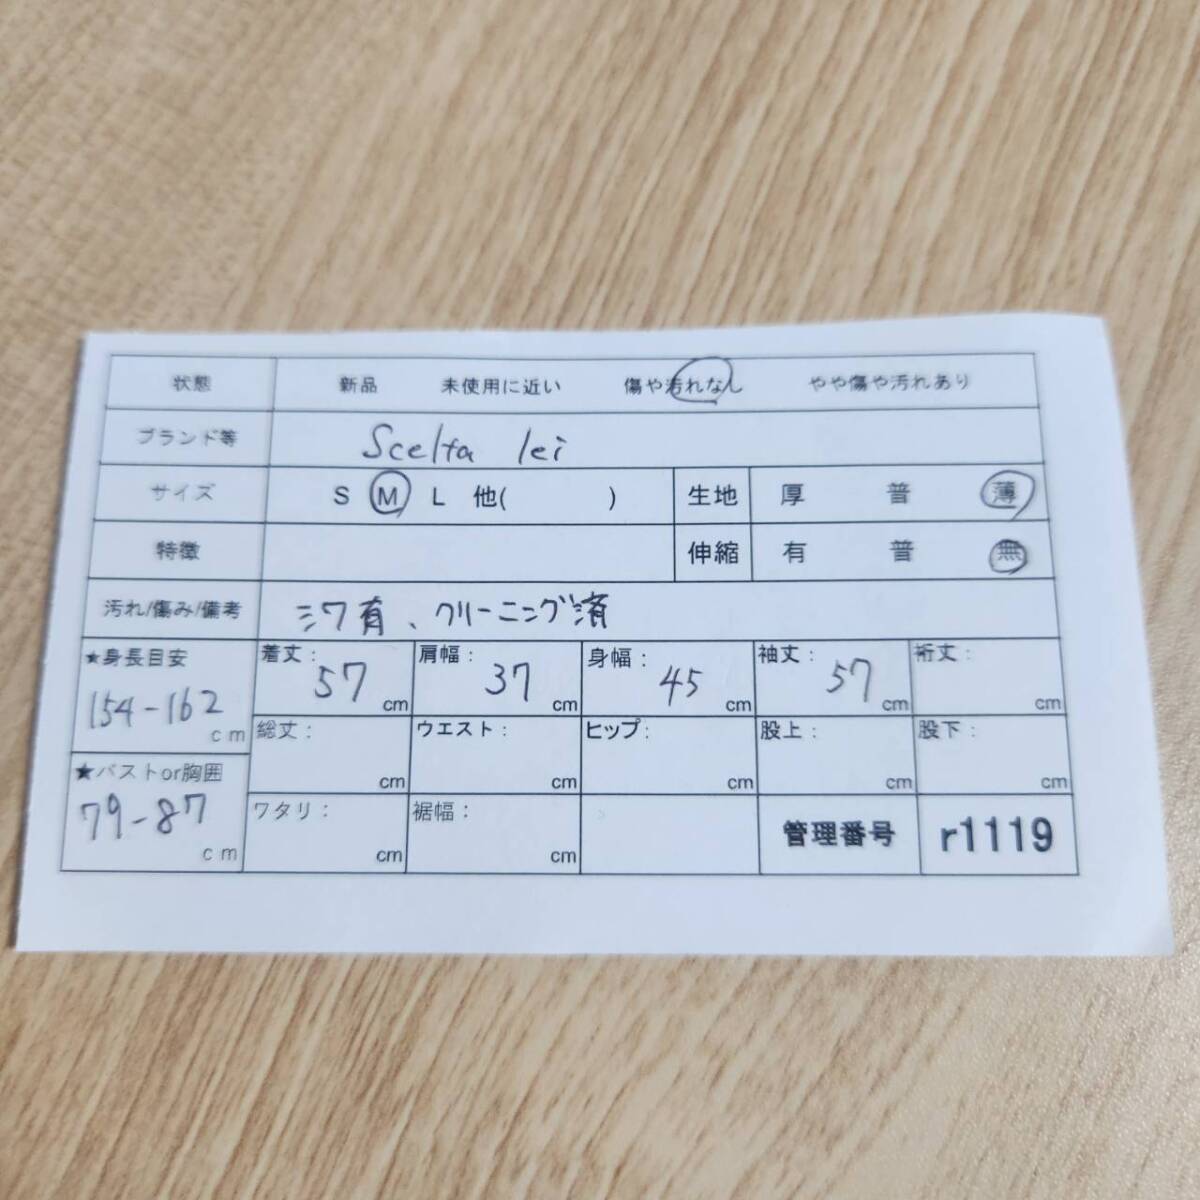 状態 新品 未使用に近い 傷や汚れなし やや傷や汚れあり
ブランド等 Scelta lei
サイズ S M L 他( ) 生地 厚 普 薄
特徴 伸縮 有 普 無
汚れ/傷み/備考 シワ有、クリーニング済
★身長目安 154-162 cm
着丈: 57 cm 肩幅: 37 cm 身幅: 45 cm 袖丈: 57 cm 裄丈: cm
総丈: cm ウエスト: cm ヒップ: cm 股上: cm 股下: cm
★バストor胸囲 79-87 cm
ワタリ: cm 裾幅: cm 管理番号 r1119